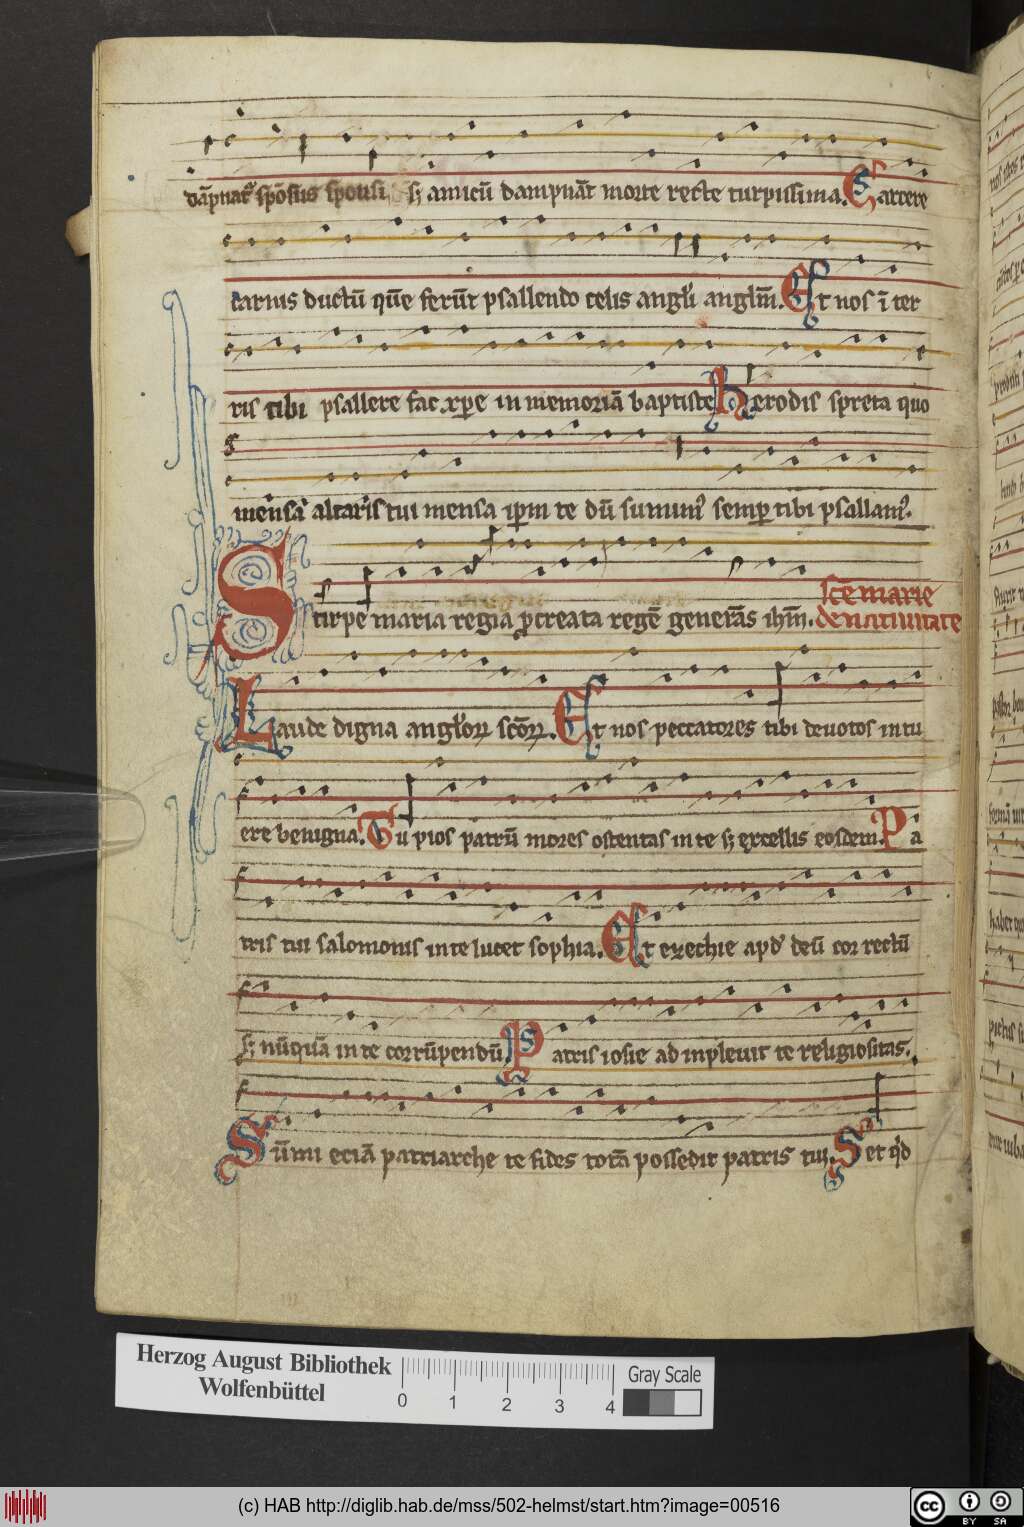 dāpnat᷑ spōsus sponsi sꝫ amicū dampnāt morte recte turpissima. Carcere
tarius ductū quē ferūt psallendo celis angli anglm̄. Et nos ī ter
ris tibi psallere fac xpe in memoriā baptiste Herodis spreta quo
mensā altaris tui mensa ip̄m te dū sumimꝰ semꝑ tibi psallamꝰ.
Stirpe maria regia ꝓcreata regē generās ihm̄. sc̄e marie
de natiuitate
Laude digna angloꝝ sc̄oꝝ. Et nos peccatores tibi deuotos in tu
ere benigna. Tu pios patrū mores ostentas in te sꝫ excellis eosdem. Pa
tris tui salomonis in te lucet sophia. Et ezechie apđ deū cor rectū
sꝫ nūquā in te corrūpendū. Patris iosie adinpleuit te religiositas.
Sūmi eciā patriarche te fides totā possedit patris tui. Set qđ
Herzog August Bibliothek
Wolfenbüttel
0 1 2 3 4
Gray Scale
(c) HAB http://diglib.hab.de/mss/502-helmst/start.htm?image=00516
cc BY SA